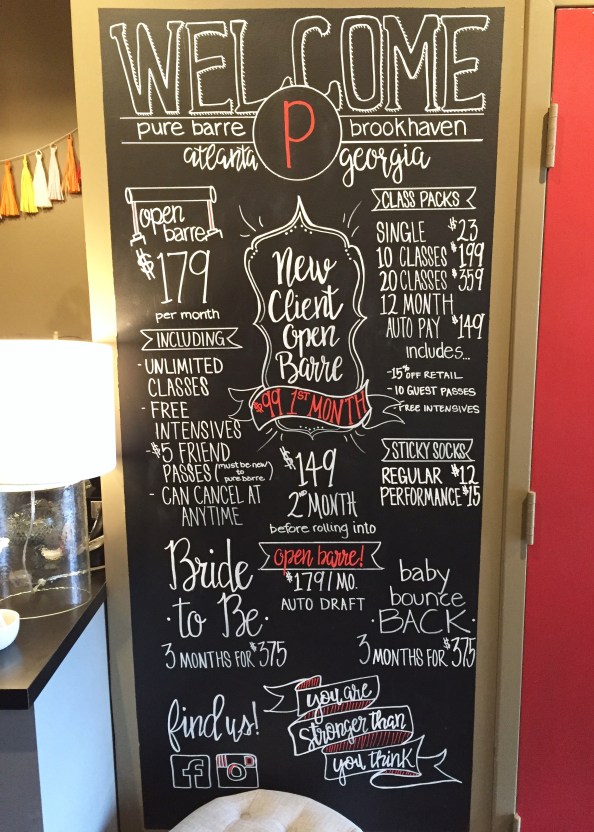 WELCOME
pure barre P brookhaven
atlanta georgia
open
barre
$179
per month
INCLUDING
- UNLIMITED
CLASSES
- FREE
INTENSIVES
- $5 FRIEND
PASSES (must be new
to
pure barre)
- CAN CANCEL AT
ANYTIME
New
Client
Open
Barre
$99 1ST MONTH
$149
2ND MONTH
before rolling into
open barre!
$179/MO.
AUTO DRAFT
CLASS PACKS
SINGLE $23
10 CLASSES $199
20 CLASSES $359
12 MONTH
AUTO PAY $149
includes...
-15% OFF RETAIL
- 10 GUEST PASSES
- FREE INTENSIVES
STICKY SOCKS
REGULAR $12
PERFORMANCE $15
Bride
·to Be·
3 MONTHS FOR $375
baby
bounce
·BACK·
3 MONTHS FOR $375
find us!
f
you are
stronger than
you think